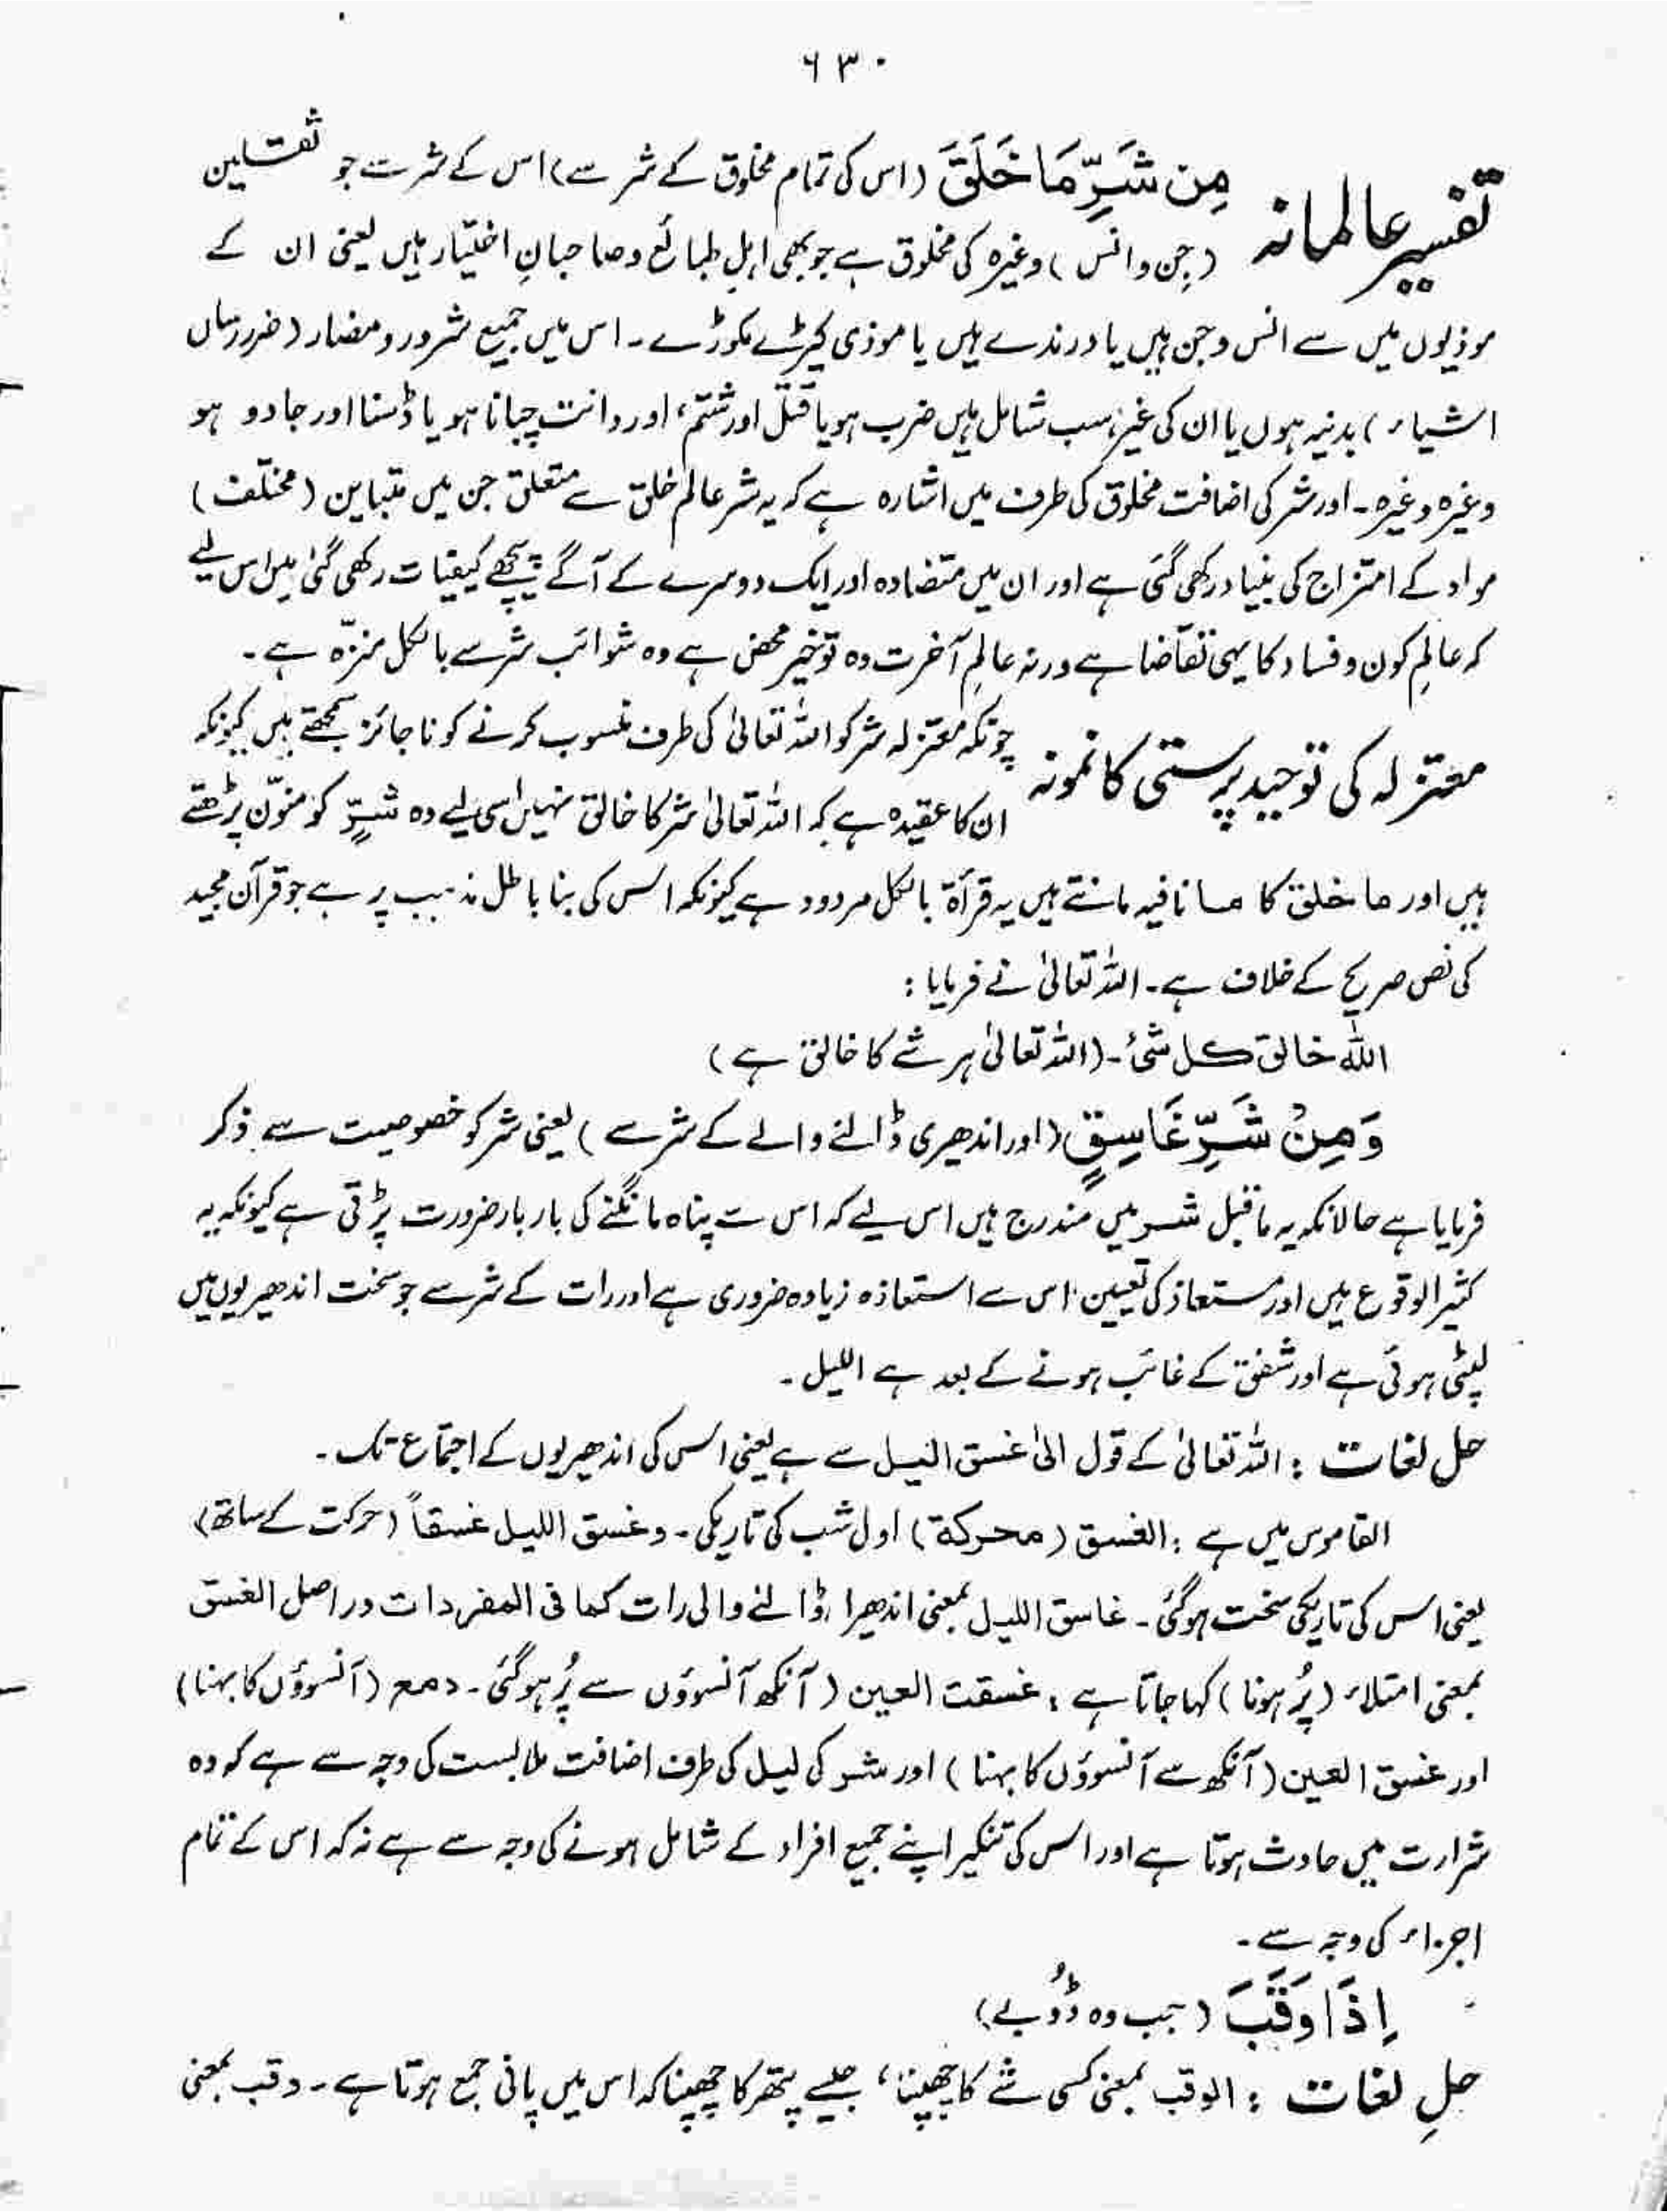 ۶۳۰
تفسیر عالمانہ
مِن شَرِّ مَا خَلَقَ (اس کی تمام مخلوق کے شر سے) اس کے شر سے جو ثقلین
(جن و انس) وغیرہ کی مخلوق ہے جو بھی اہلِ طبائع و صاحبانِ اختیار ہیں یعنی ان کے
موذیوں میں سے انس و جن ہیں یا درندے ہیں یا موذی کیڑے مکوڑے۔ اس میں جمیع شرور و مضار (ضرر رساں
اشیاء) بدنیہ ہوں یا ان کی غیر، سب شامل ہیں ضرب ہو یا قتل اور شتم، اور دانت چبانا ہو یا ڈسنا اور جادو ہو
وغیرہ وغیرہ۔ اور شر کی اضافت مخلوق کی طرف میں اشارہ ہے کہ یہ شر عالم خلق سے متعلق جن میں متباین (مختلف)
مواد کے امتزاج کی بنیاد رکھی گئی ہے اور ان میں متضادہ اور ایک دوسرے کے آگے پیچھے کیفیات رکھی گئی ہیں اس لیے
کہ عالمِ کون و فساد کا یہی تقاضا ہے ورنہ عالمِ آخرت وہ تو خیر محض ہے وہ شوائب شر سے بالکل منزّہ ہے۔
معتزلہ کی توحید پرستی کا نمونہ
چونکہ معتزلہ شر کو اللہ تعالیٰ کی طرف منسوب کرنے کو ناجائز سمجھتے ہیں کیونکہ
ان کا عقیدہ ہے کہ اللہ تعالیٰ شر کا خالق نہیں اسی لیے وہ شرٍّ کو منوّن پڑھتے
ہیں اور ما خلق کا ما نافیہ مانتے ہیں یہ قرأۃ بالکل مردود ہے کیونکہ اس کی بنا باطل مذہب پر ہے جو قرآن مجید
کی نص صریح کے خلاف ہے۔ اللہ تعالیٰ نے فرمایا :
اللہ خالق کل شئ۔ (اللہ تعالیٰ ہر شے کا خالق ہے)
وَمِنْ شَرِّ غَاسِقٍ (اور اندھیری ڈالنے والے کے شر سے) یعنی شر کو خصوصیت سے ذکر
فرمایا ہے حالانکہ یہ ماقبل شر میں مندرج ہیں اس لیے کہ اس سے پناہ مانگنے کی بار بار ضرورت پڑتی ہے کیونکہ یہ
کثیر الوقوع ہیں اور مستعاذ کی تعیین اس سے استعاذہ زیادہ ضروری ہے اور رات کے شر سے جو سخت اندھیریوں میں
لپٹی ہوئی ہے اور شفق کے غائب ہونے کے بعد ہے اللیل۔
حل لغات : اللہ تعالیٰ کے قول الیٰ غسق الیل سے ہے یعنی اس کی اندھیریوں کے اجتماع تک۔
القاموس میں ہے : الغسق (محرکۃ) اول شب کی تاریکی۔ وغسق اللیل غسقاً (حرکت کے ساتھ)
یعنی اس کی تاریکی سخت ہوگئی۔ غاسق اللیل بمعنی اندھیرا ڈالنے والی رات کما فی المفردات دراصل الغسق
بمعنی امتلاء (پُر ہونا) کہا جاتا ہے : غسقت العین (آنکھ آنسوؤں سے پُر ہوگئی۔ دمع (آنسوؤں کا بہنا)
اور غسق العین (آنکھ سے آنسوؤں کا بہنا) اور شر کی لیل کی طرف اضافت ملابست کی وجہ سے ہے کہ وہ
شرارت میں حادث ہوتا ہے اور اس کی تنکیر اپنے جمیع افراد کے شامل ہونے کی وجہ سے ہے نہ کہ اس کے تمام
اجزاء کی وجہ سے۔
اِذَا وَقَبَ (جب وہ ڈُوبے)
حلِ لغات : الوقب بمعنی کسی شے کا چھپنا، جیسے پتھر کا چھپنا کہ اس میں پانی جمع ہوتا ہے۔ وقب بمعنی